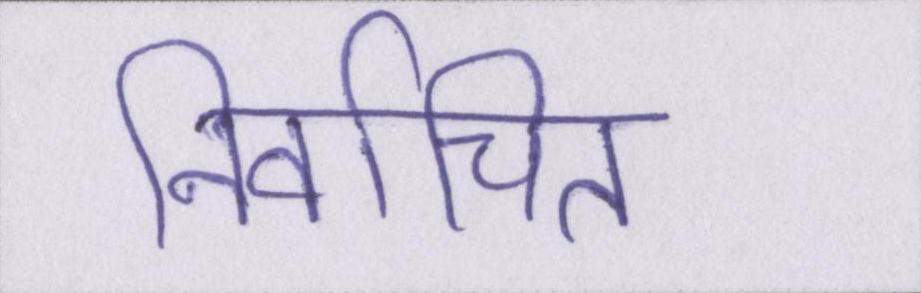 निर्वाचित